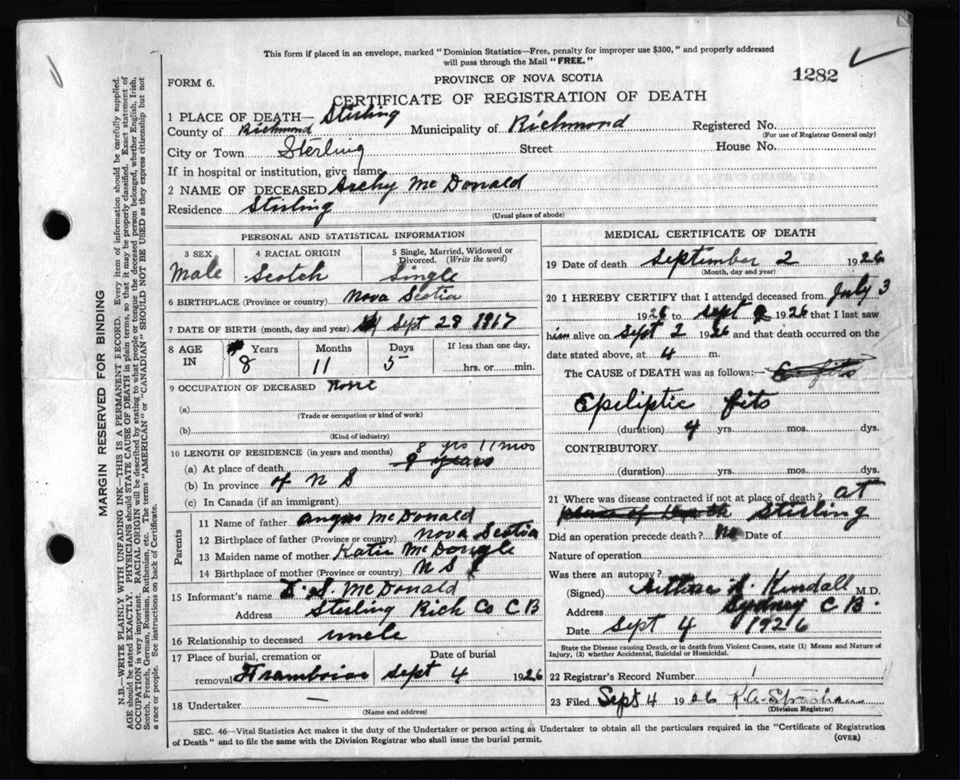 This form if placed in an envelope, marked "Dominion Statistics—Free, penalty for improper use $300," and properly addressed
will pass through the Mail "FREE."
1282
FORM 6.
PROVINCE OF NOVA SCOTIA
CERTIFICATE OF REGISTRATION OF DEATH
1 PLACE OF DEATH— Stirling
County of Richmond Municipality of Richmond Registered No.
(For use of Registrar General only)
City or Town Sterling Street House No.
If in hospital or institution, give name
2 NAME OF DECEASED Archy McDonald
Residence Stirling
(Usual place of abode)
PERSONAL AND STATISTICAL INFORMATION
3 SEX 4 RACIAL ORIGIN 5 Single, Married, Widowed or
Divorced. (Write the word)
Male Scotch Single
6 BIRTHPLACE (Province or country) Nova Scotia
7 DATE OF BIRTH (month, day and year) Sept 28 1917
8 AGE Years Months Days If less than one day,
IN 8 11 5 hrs. or min.
9 OCCUPATION OF DECEASED None
(a)
(Trade or occupation or kind of work)
(b)
(Kind of industry)
8 yrs 11 mos
10 LENGTH OF RESIDENCE (in years and months)
(a) At place of death 9 years
(b) In province of N S
(c) In Canada (if an immigrant)
Parents
11 Name of father Angus McDonald
12 Birthplace of father (Province or country) Nova Scotia
13 Maiden name of mother Katie
14 Birthplace of mother (Province or country) N S
15 Informant's name D. S. McDonald
Address Stirling Rich Co C B
16 Relationship to deceased uncle
17 Place of burial, cremation or Date of burial
removal Framboise Sept 4 1926
18 Undertaker —
(Name and address)
MEDICAL CERTIFICATE OF DEATH
19 Date of death September 2 1926
(Month, day and year)
20 I HEREBY CERTIFY that I attended deceased from July 3
1926 to Sept 2 1926 that I last saw
him alive on Sept 2 1926 and that death occurred on the
date stated above, at 4 m.
The CAUSE OF DEATH was as follows:—
Epeliptic fits
(duration) 4 yrs. mos. dys.
CONTRIBUTORY
(duration) yrs. mos. dys.
21 Where was disease contracted if not at place of death? at
place of death Stirling
Did an operation precede death? No Date of
Nature of operation
Was there an autopsy?
(Signed) Arthur S. Kendall M.D.
Address Sydney C B.
Date Sept 4 1926
State the Disease causing Death, or in death from Violent Causes, state (1) Means and Nature of
Injury, (2) whether Accidental, Suicidal or Homicidal.
22 Registrar's Record Number 1
23 Filed Sept 4 1926 K.A.
(Division Registrar)
SEC. 46—Vital Statistics Act makes it the duty of the Undertaker or person acting as Undertaker to obtain all the particulars required in the "Certificate of Registration
of Death" and to file the same with the Division Registrar who shall issue the burial permit.
(OVER)
MARGIN RESERVED FOR BINDING
N.B.—WRITE PLAINLY WITH UNFADING INK—THIS IS A PERMANENT RECORD. Every item of information should be carefully supplied.
AGE should be stated EXACTLY. PHYSICIANS should STATE CAUSE OF DEATH in plain terms, so that it may be properly classified. Exact statement of
OCCUPATION is very important. RACIAL ORIGIN will be described by stating to what people or tongue the deceased person belonged, whether English, Irish,
Scotch, French, German, Russian, Ruthenian, etc. The terms "AMERICAN" or "CANADIAN" SHOULD NOT BE USED as they express citizenship but not
a race or people. See instructions on back of Certificate.